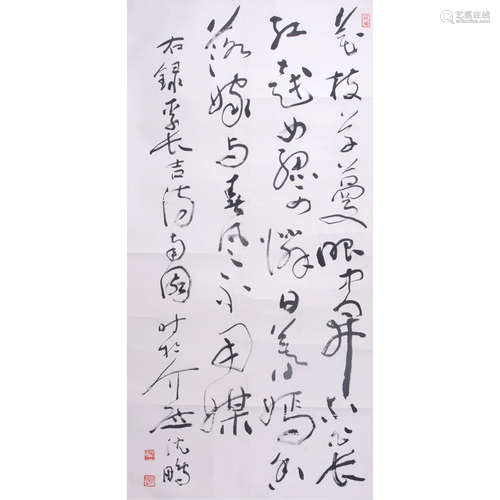 花枝草蔓眼中开小白长
红越女腮可憐日暮嫣香
落嫁与春风不用媒
右録李长吉诗南園时於介居沈鹏